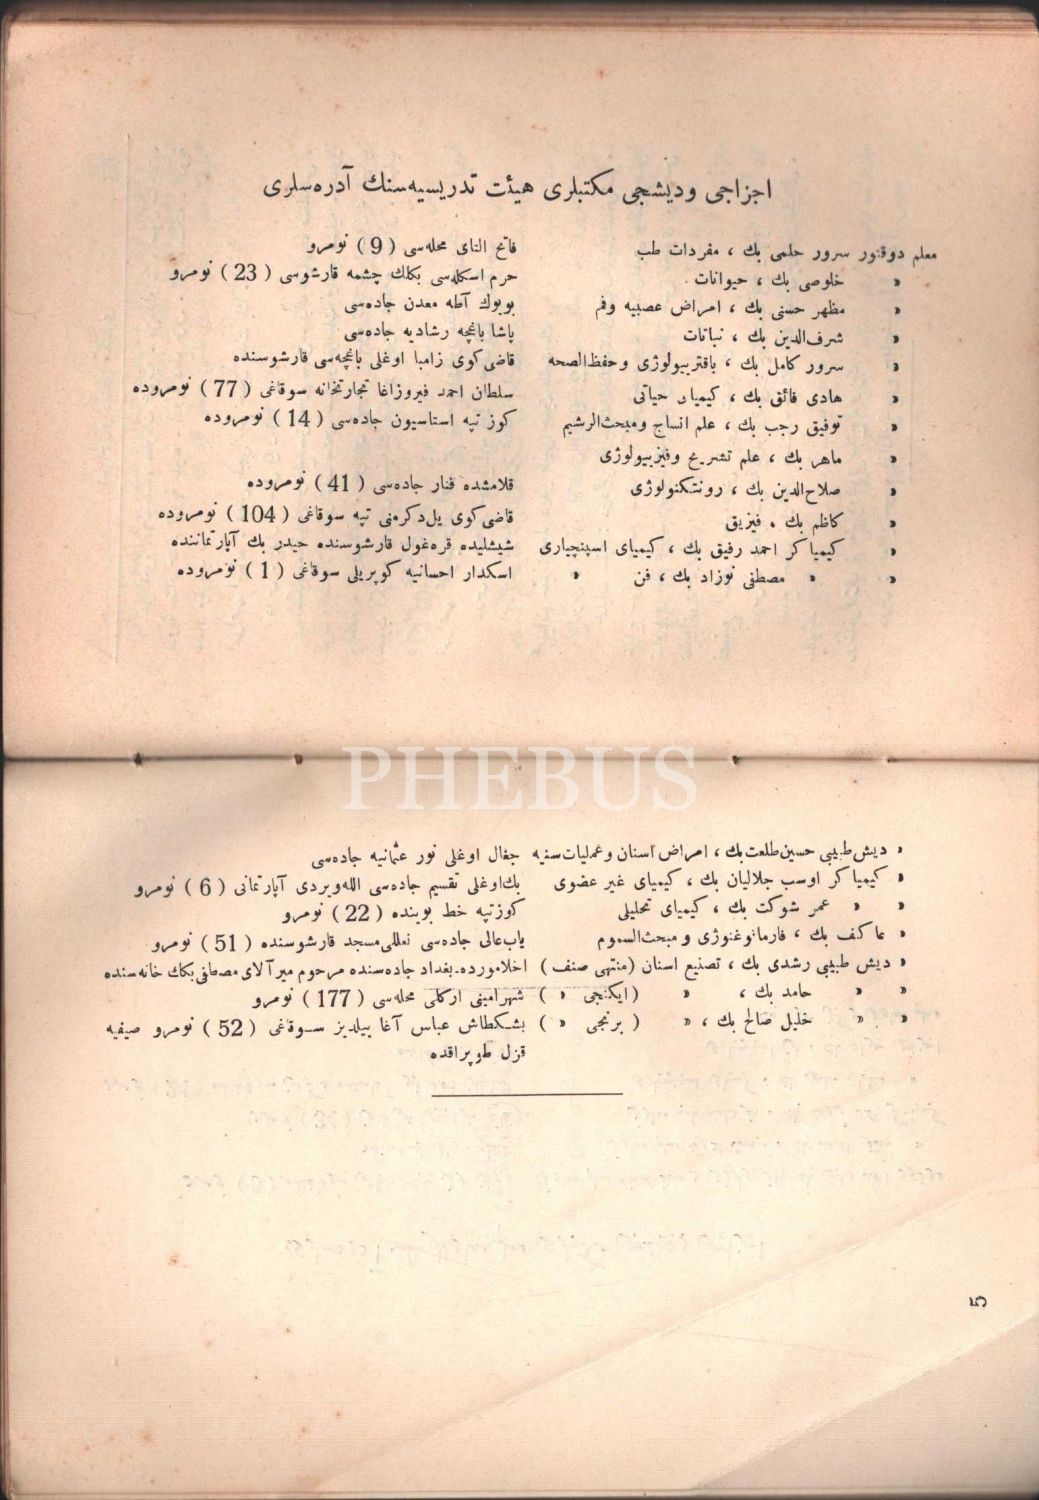 اجزاجی و دیشجی مکتبلری هیئت تدریسیه‌سنك آدره‌سلری
معلم دوقتور سرور حلمی بك ، مفردات طب فاتح التای محله‌سی ( 9 ) نومرو
» خلوصی بك ، حیوانات حرم اسکله‌سی بکلك چشمه قارشوسی ( 23 ) نومرو
» مظهر حسنی بك ، امراض عصبیه وفم بویوك آطه معدن جاده‌سی
» شرف‌الدین بك ، نباتات پاشا باغچه رشادیه جاده‌سی
» سرور کامل بك ، باقتریولوژی وحفظ‌الصحه قاضی کوی زامبا اوغلی باغچه‌سی قارشوسنده
» هادی فائق بك ، کیمیای حیاتی سلطان احمد فیروزاغا تجارتخانه سوقاغی ( 77 ) نومروده
» توفیق رجب بك ، علم انساج ومبحث‌الرشیم کوز تپه استاسیون جاده‌سی ( 14 ) نومروده
» ماهر بك ، علم تشریح وفیزیولوژی
» صلاح‌الدین بك ، رونتکنولوژی قلامشده فنار جاده‌سی ( 41 ) نومروده
» کاظم بك ، فیزیق قاضی کوی یل‌دکرمنی تپه سوقاغی ( 104 ) نومروده
» کیمیا کر احمد رفیق بك ، کیمیای اسپنچیاری شیشلیده قره‌غول قارشوسنده حیدر بك آپارتماننده
» » مصطفی نوزاد بك ، فن » اسکدار احسانیه کوپریلی سوقاغی ( 1 ) نومروده
PHEBUS
» دیش طبیبی حسین طلعت بك ، امراض اسنان وعملیات سنیه جغال اوغلی نور عثمانیه جاده‌سی
» کیمیا کر اوسب جلالیان بك ، کیمیای غیر عضوی بك‌اوغلی تقسیم جاده‌سی الله‌ویردی آپارتمانی ( 6 ) نومرو
» » عمر شوکت بك ، کیمیای تحلیلی کوزتپه خط بوینده ( 22 ) نومرو
» عاکف بك ، فارماقوغنوزی و مبحث‌السموم باب‌عالی جاده‌سی نعللی‌مسجد قارشوسنده ( 51 ) نومرو
» دیش طبیبی رشدی بك ، تصنیع اسنان (منتهی صنف ) اخلامورده‌ـ بغداد جاده‌سنده مرحوم میرآلای مصطفی بکك خانه‌سنده
» » حامد بك ، » ( ایکنجی » ) شهرامینی ارکلی محله‌سی ( 177 ) نومرو
» » خلیل صالح بك ، » ( برنجی » ) بشکطاش عباس آغا ییلدیز سوقاغی ( 52 ) نومرو صیفیه
قزل طوپراقده